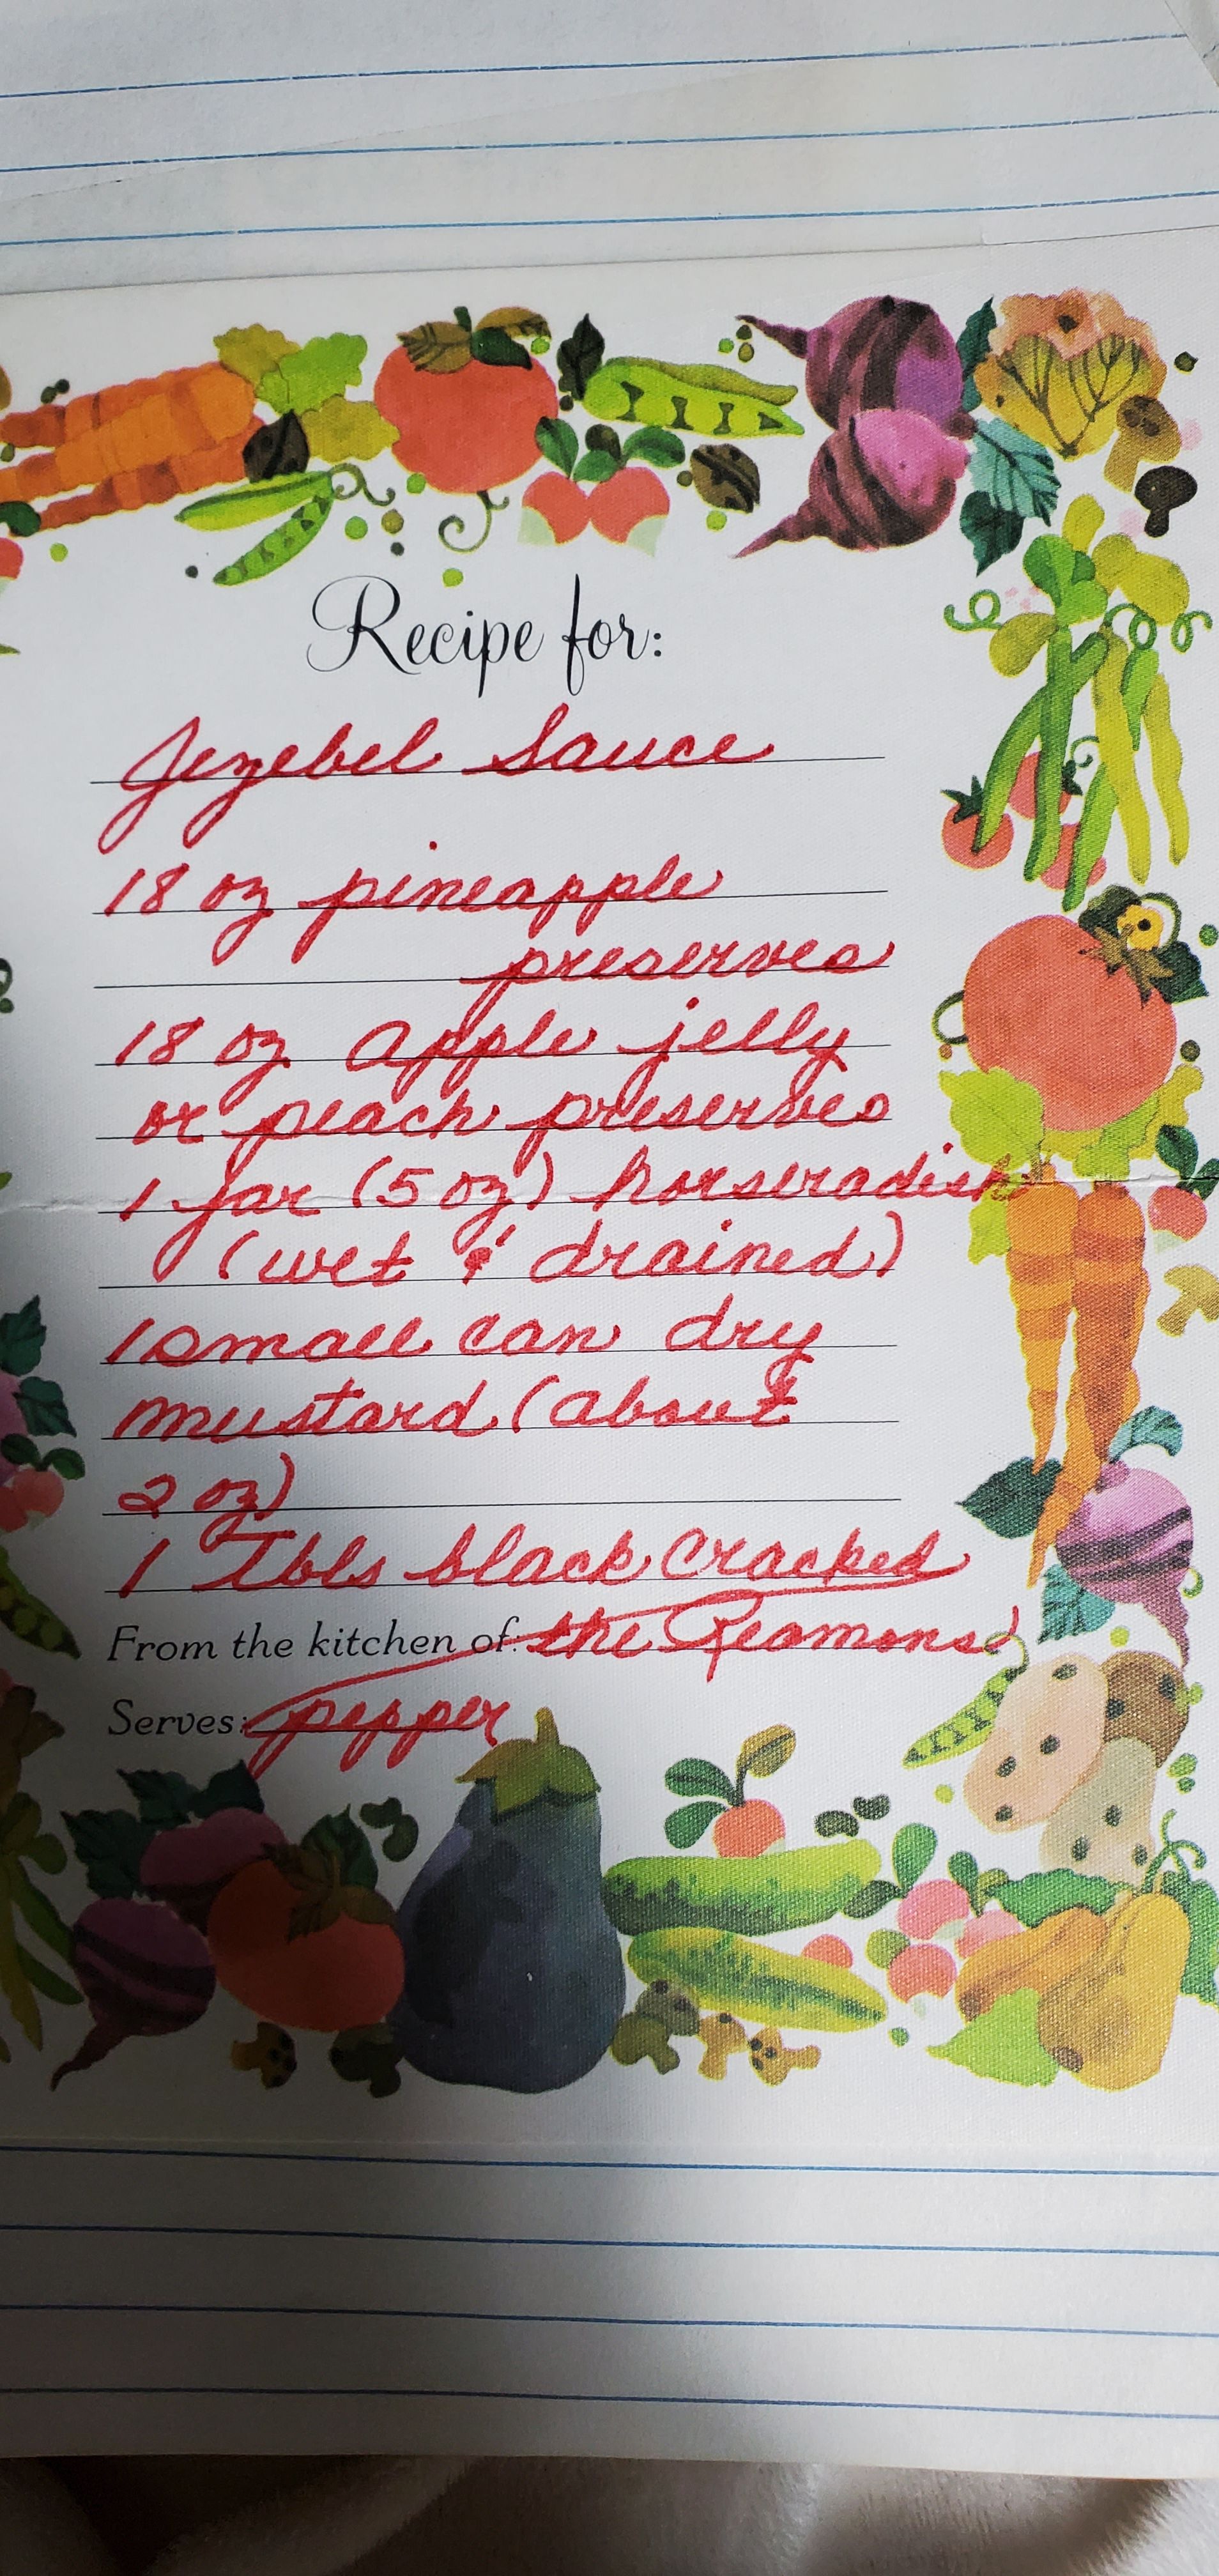 Recipe for:
Jezebel Sauce
18 oz pineapple
preserves
18 oz apple jelly
or peach preserves
1 jar (5 oz) horseradish
(wet & drained)
1 small can dry
mustard (about
2 oz)
1 Tbls black cracked
From the kitchen of: the Reamons
Serves: pepper